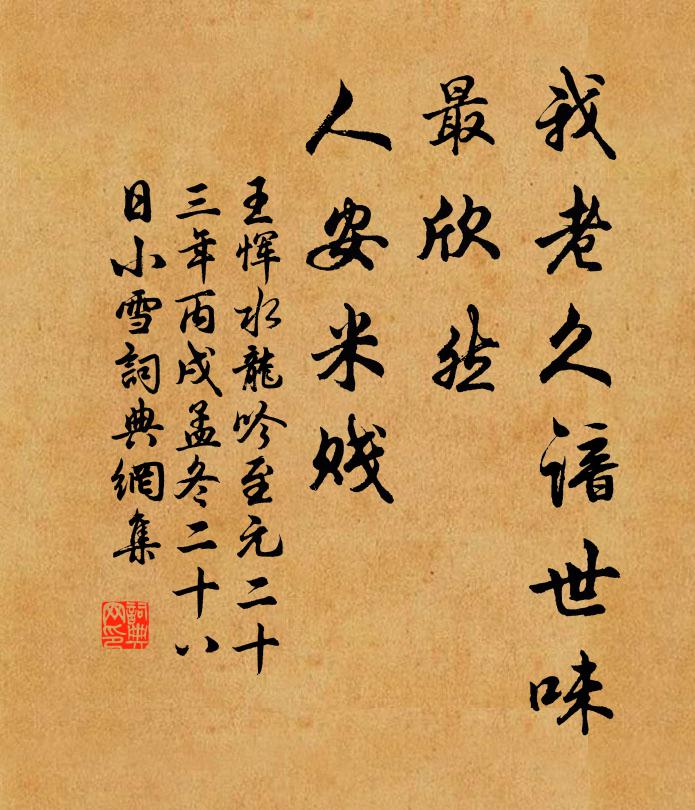 我老久谙世味
最欣然
人安米贱
王恽水龍吟至元二十
三年丙戌孟冬二十八
日小雪詞典網集
詞典
网印